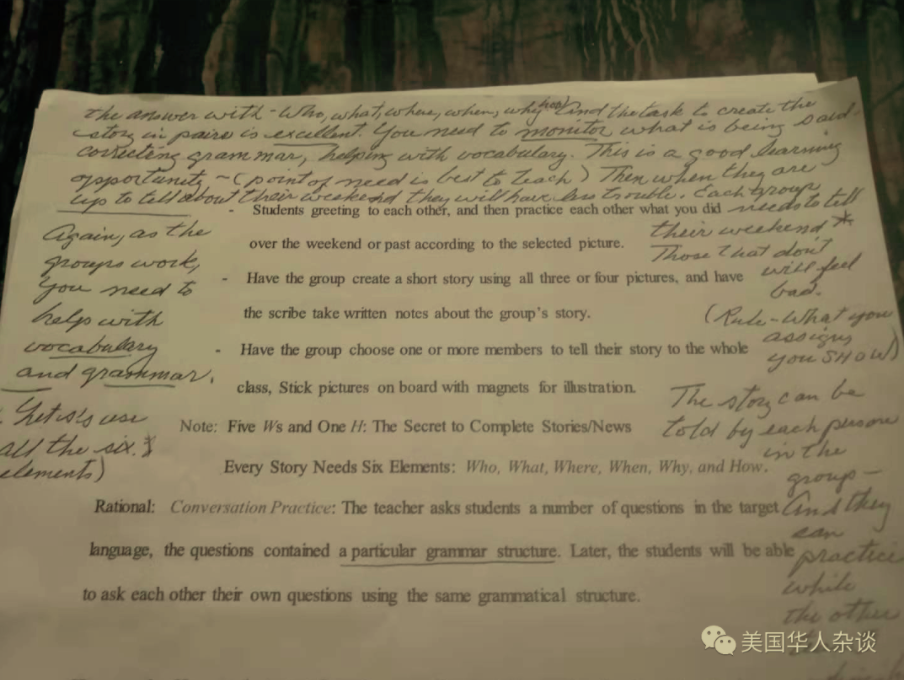 the answer with - Who, what, where, when, why (how) and the task to create the
story in pairs is excellent. You need to monitor what is being said -
correcting grammar, helping with vocabulary. This is a good learning
opportunity - (point of need is best to teach) Then when they are
up to tell about their weekend they will have less trouble. Each group
needs to tell
their weekend *
Those that don't
will feel
bad.
(Rule - What you
assign,
you SHOW)
The story can be
told by each person
in the
group -
And they
can
practice
while
the other
Again, as the
groups work,
you need to
help with
vocabulary
and grammar.
use
all the six.
elements)
- Students greeting to each other, and then practice each other what you did
over the weekend or past according to the selected picture.
- Have the group create a short story using all three or four pictures, and have
the scribe take written notes about the group's story.
- Have the group choose one or more members to tell their story to the whole
class, Stick pictures on board with magnets for illustration.
Note: Five Ws and One H: The Secret to Complete Stories/News
Every Story Needs Six Elements: Who, What, Where, When, Why, and How.
Rational: Conversation Practice: The teacher asks students a number of questions in the target
language, the questions contained a particular grammar structure. Later, the students will be able
to ask each other their own questions using the same grammatical structure.
美国华人杂谈